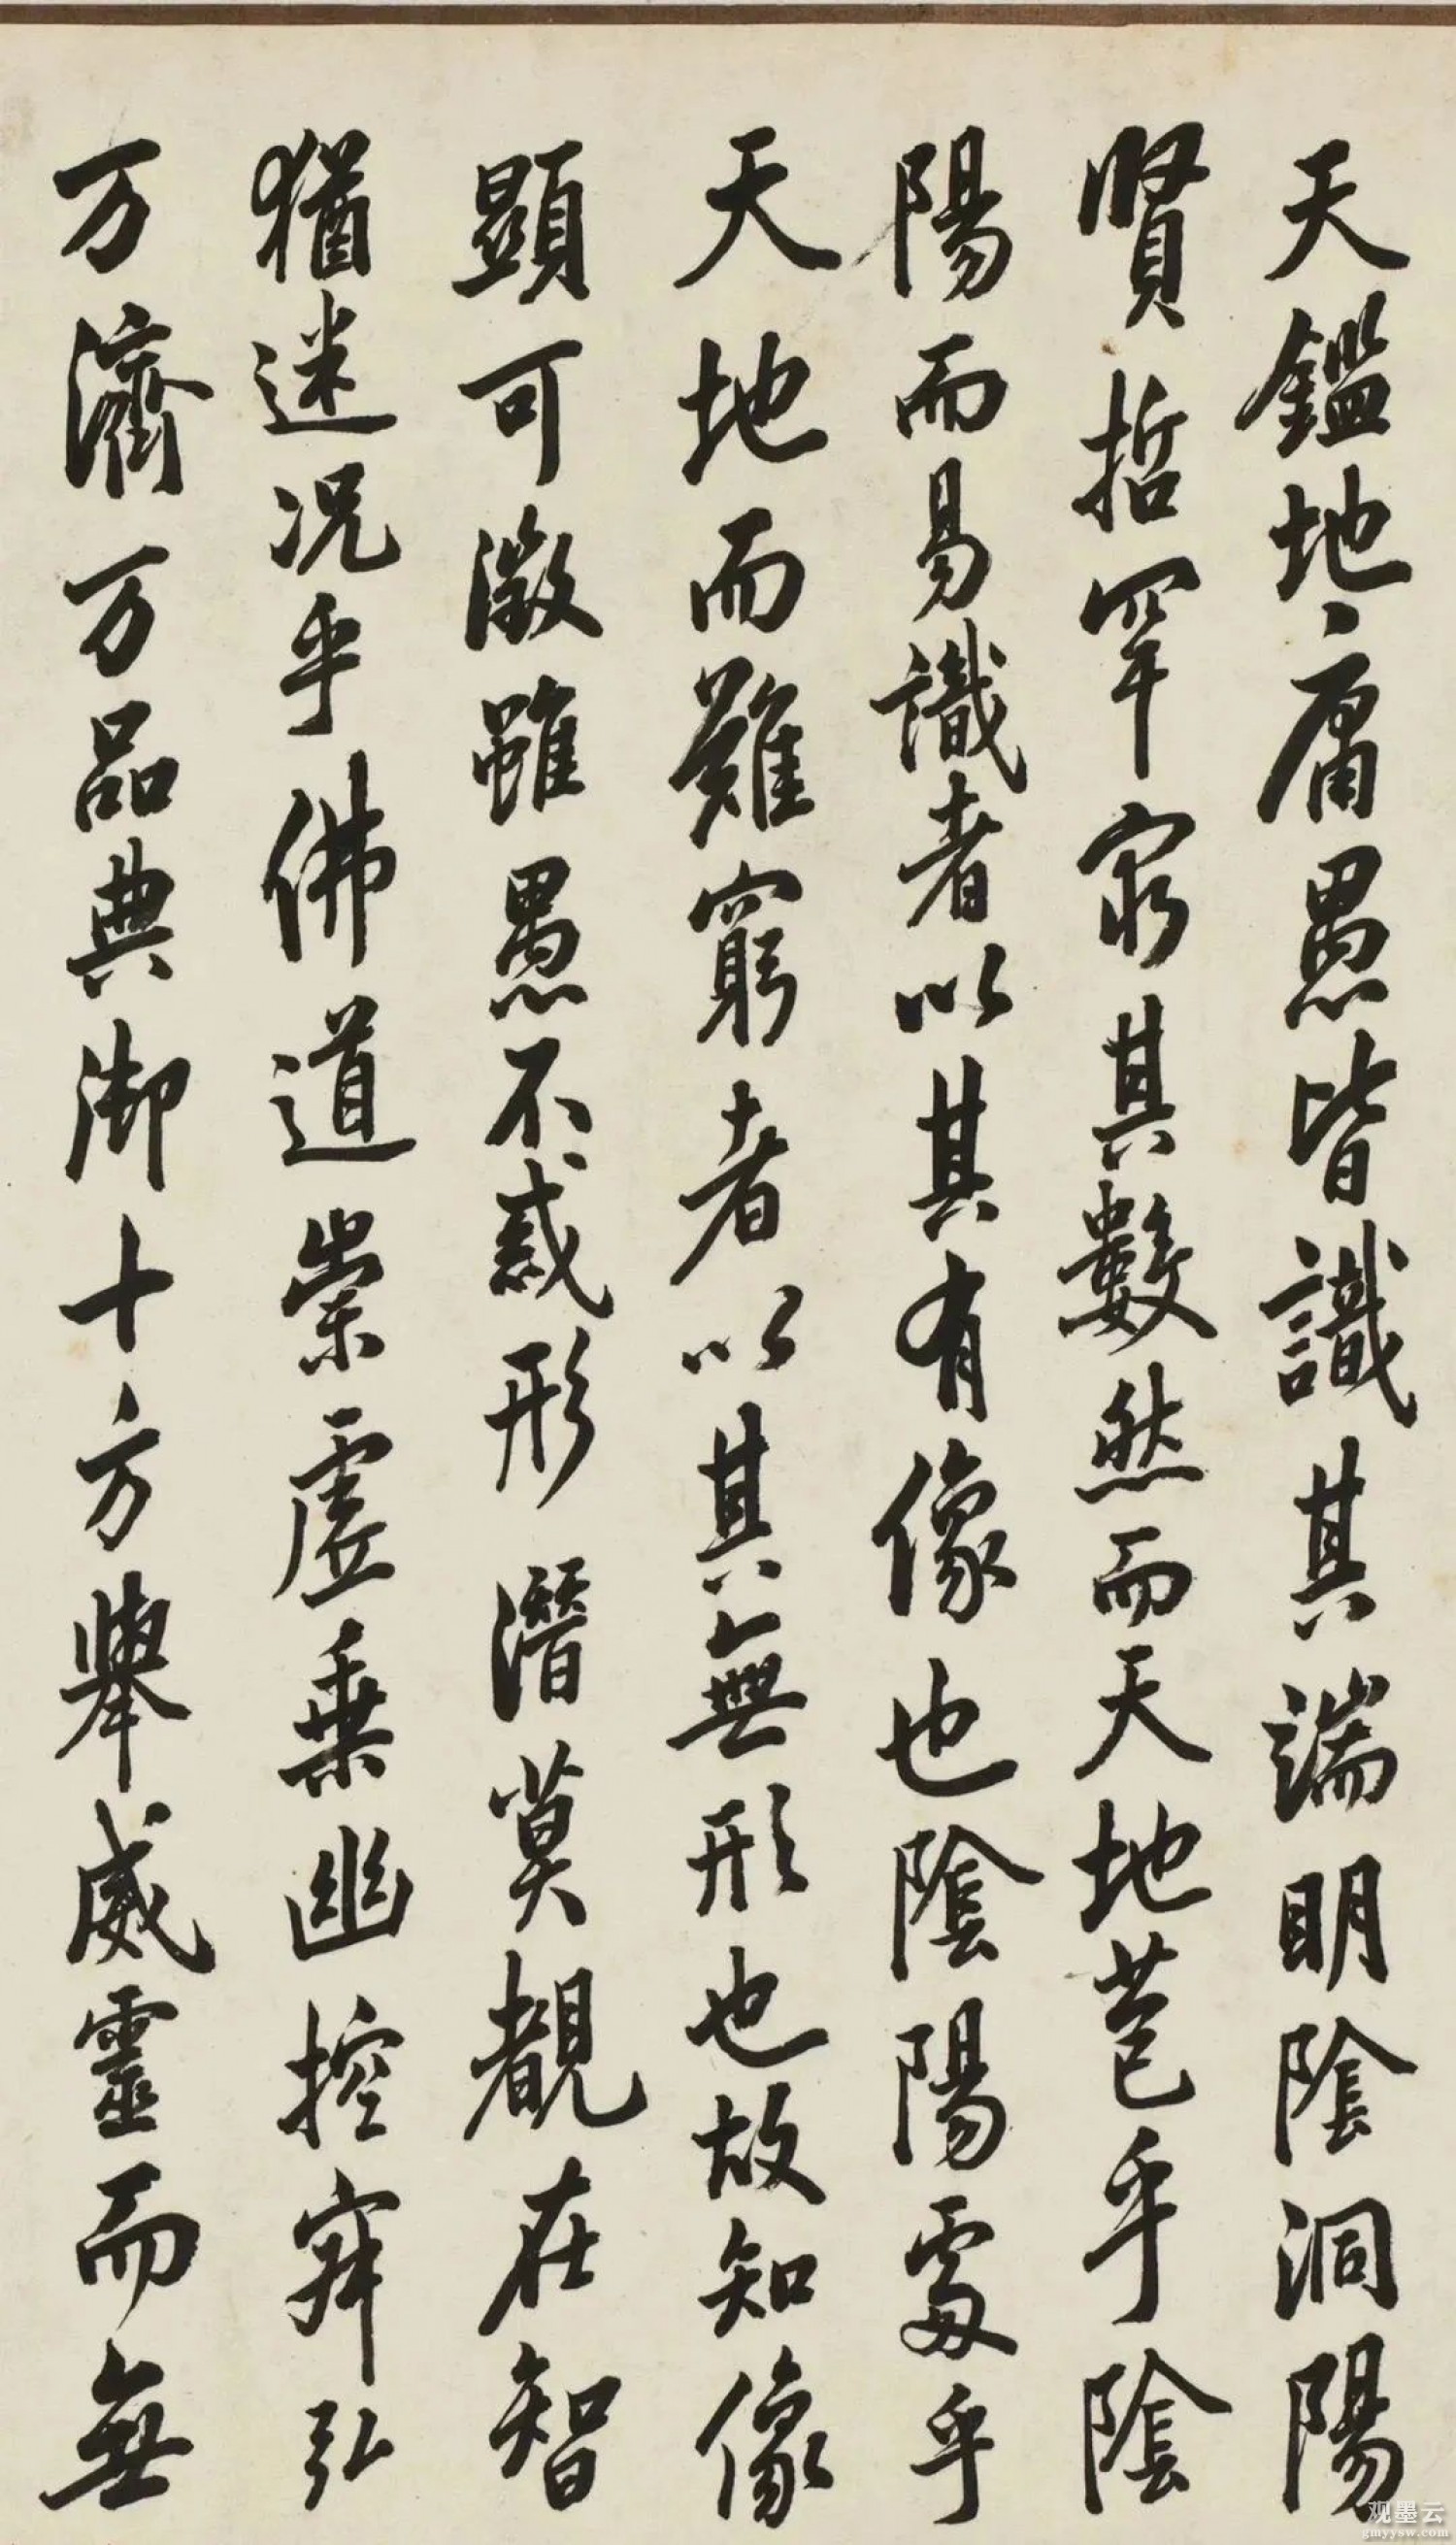 天鑑地庸愚皆識其端明陰洞陽
賢哲罕窮其數然而天地苞乎陰
陽而易識者以其有像也陰陽處乎
天地而難窮者以其無形也故知像
顯可徵雖愚不惑形潛莫覩在智
猶迷况乎佛道崇虛乗幽控寂弘
万濟万品典御十方舉威靈而無
观墨云
gmyysw.com